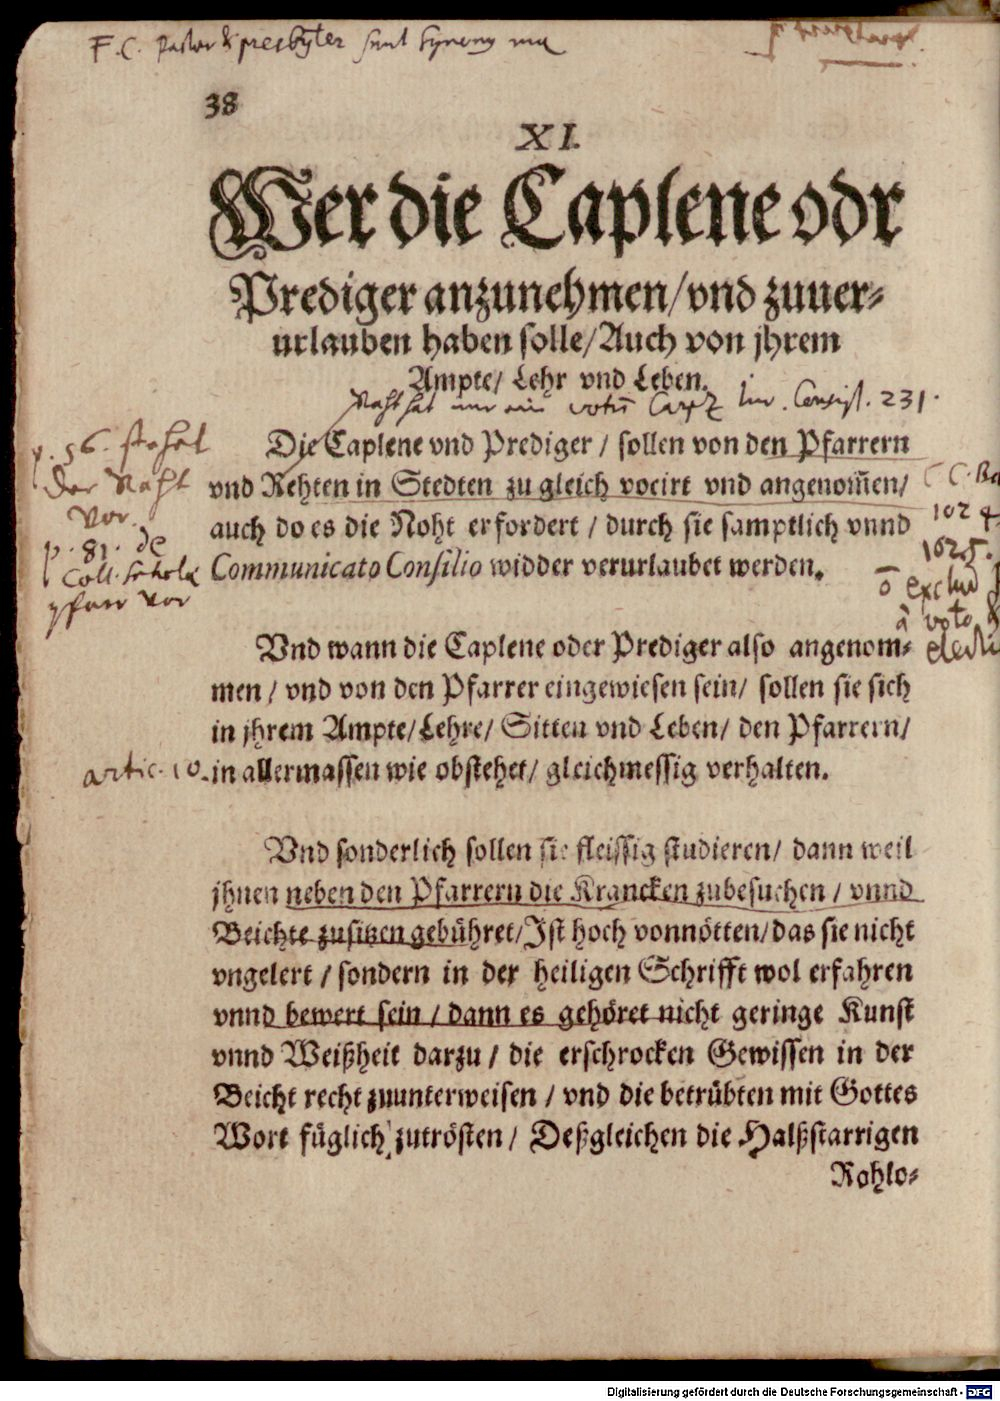 F. C. Pastor & presbyter sunt synonyma
38
XI.
Wer die Caplene odr
Prediger anzunehmen/vnd zuuer-
urlauben haben solle/Auch von jhrem
Ampte/ Lehr vnd Leben.
Raht hat nur ein votū Carpz. Consist. 231.
Die Caplene vnd Prediger / sollen von den Pfarrern
vnd Rehten in Stedten zu gleich vocirt vnd angenom̃en/
auch do es die Noht erfordert / durch sie samptlich vnnd
Communicato Consilio widder verurlaubet werden.
p. 56. stehet
der Raht
vor.
p. 81. de
Coll. Schola
pfarr vor
1024
1625.
exclud
à voto &
Vnd wann die Caplene oder Prediger also angenom-
men / vnd von den Pfarrer eingewiesen sein/ sollen sie sich
in jhrem Ampte/Lehre/ Sitten vnd Leben/ den Pfarrern/
artic. 10.
in allermassen wie obstehet/ gleichmessig verhalten.
Vnd sonderlich sollen sie fleissig studieren/ dann weil
jhnen neben den Pfarrern die Krancken zubesuchen / vnnd
Beichte zusitzen gebühret/Ist hoch vonnötten/das sie nicht
vngelert / sondern in der heiligen Schrifft wol erfahren
vnnd bewert sein / dann es gehöret nicht geringe Kunst
vnnd Weißheit darzu / die erschrocken Gewissen in der
Beicht recht zuunterweisen / vnd die betrübten mit Gottes
Wort füglich zutrösten / Deßgleichen die Halßstarrigen
Rohlo-
Digitalisierung gefördert durch die Deutsche Forschungsgemeinschaft - DFG